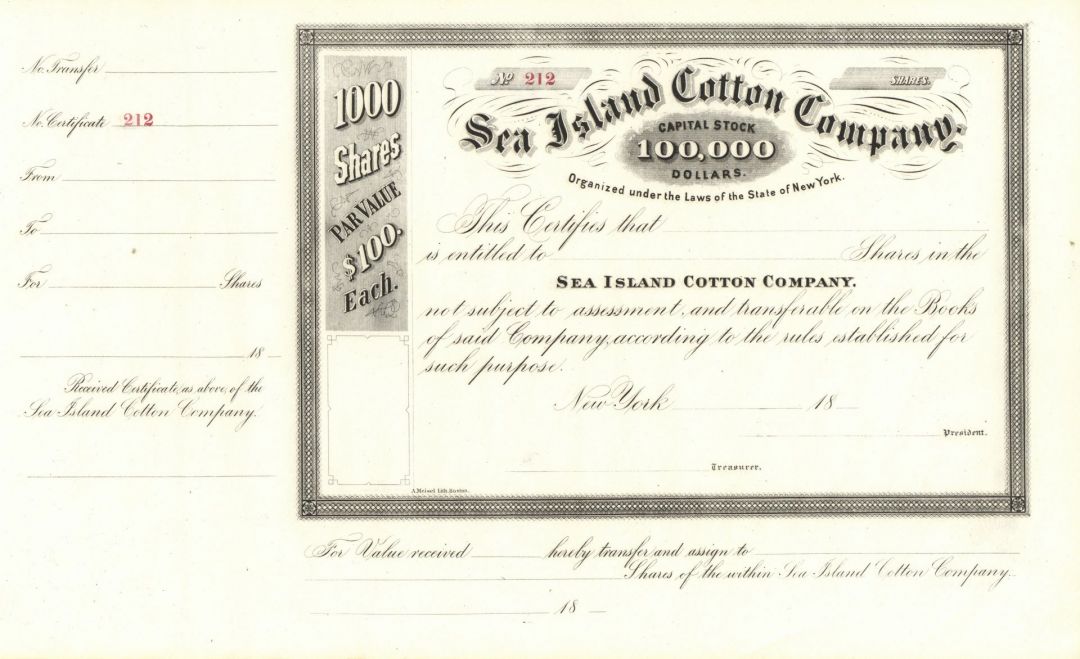 No. Transfer
No. Certificate 212
From
To
For Shares
18
Received Certificate, as above, of the
Sea Island Cotton Company.
1000
Shares
PAR VALUE
$100.
Each.
No 212
SHARES.
Sea Island Cotton Company.
CAPITAL STOCK
100,000
DOLLARS.
Organized under the Laws of the State of New York.
This Certifies that
is entitled to Shares in the
SEA ISLAND COTTON COMPANY.
not subject to assessment, and transferable on the Books
of said Company, according to the rules established for
such purpose.
New York 18
President.
Treasurer.
A. Meisel Lith. Boston.
For Value received hereby transfer and assign to
Shares of the within Sea Island Cotton Company.
18